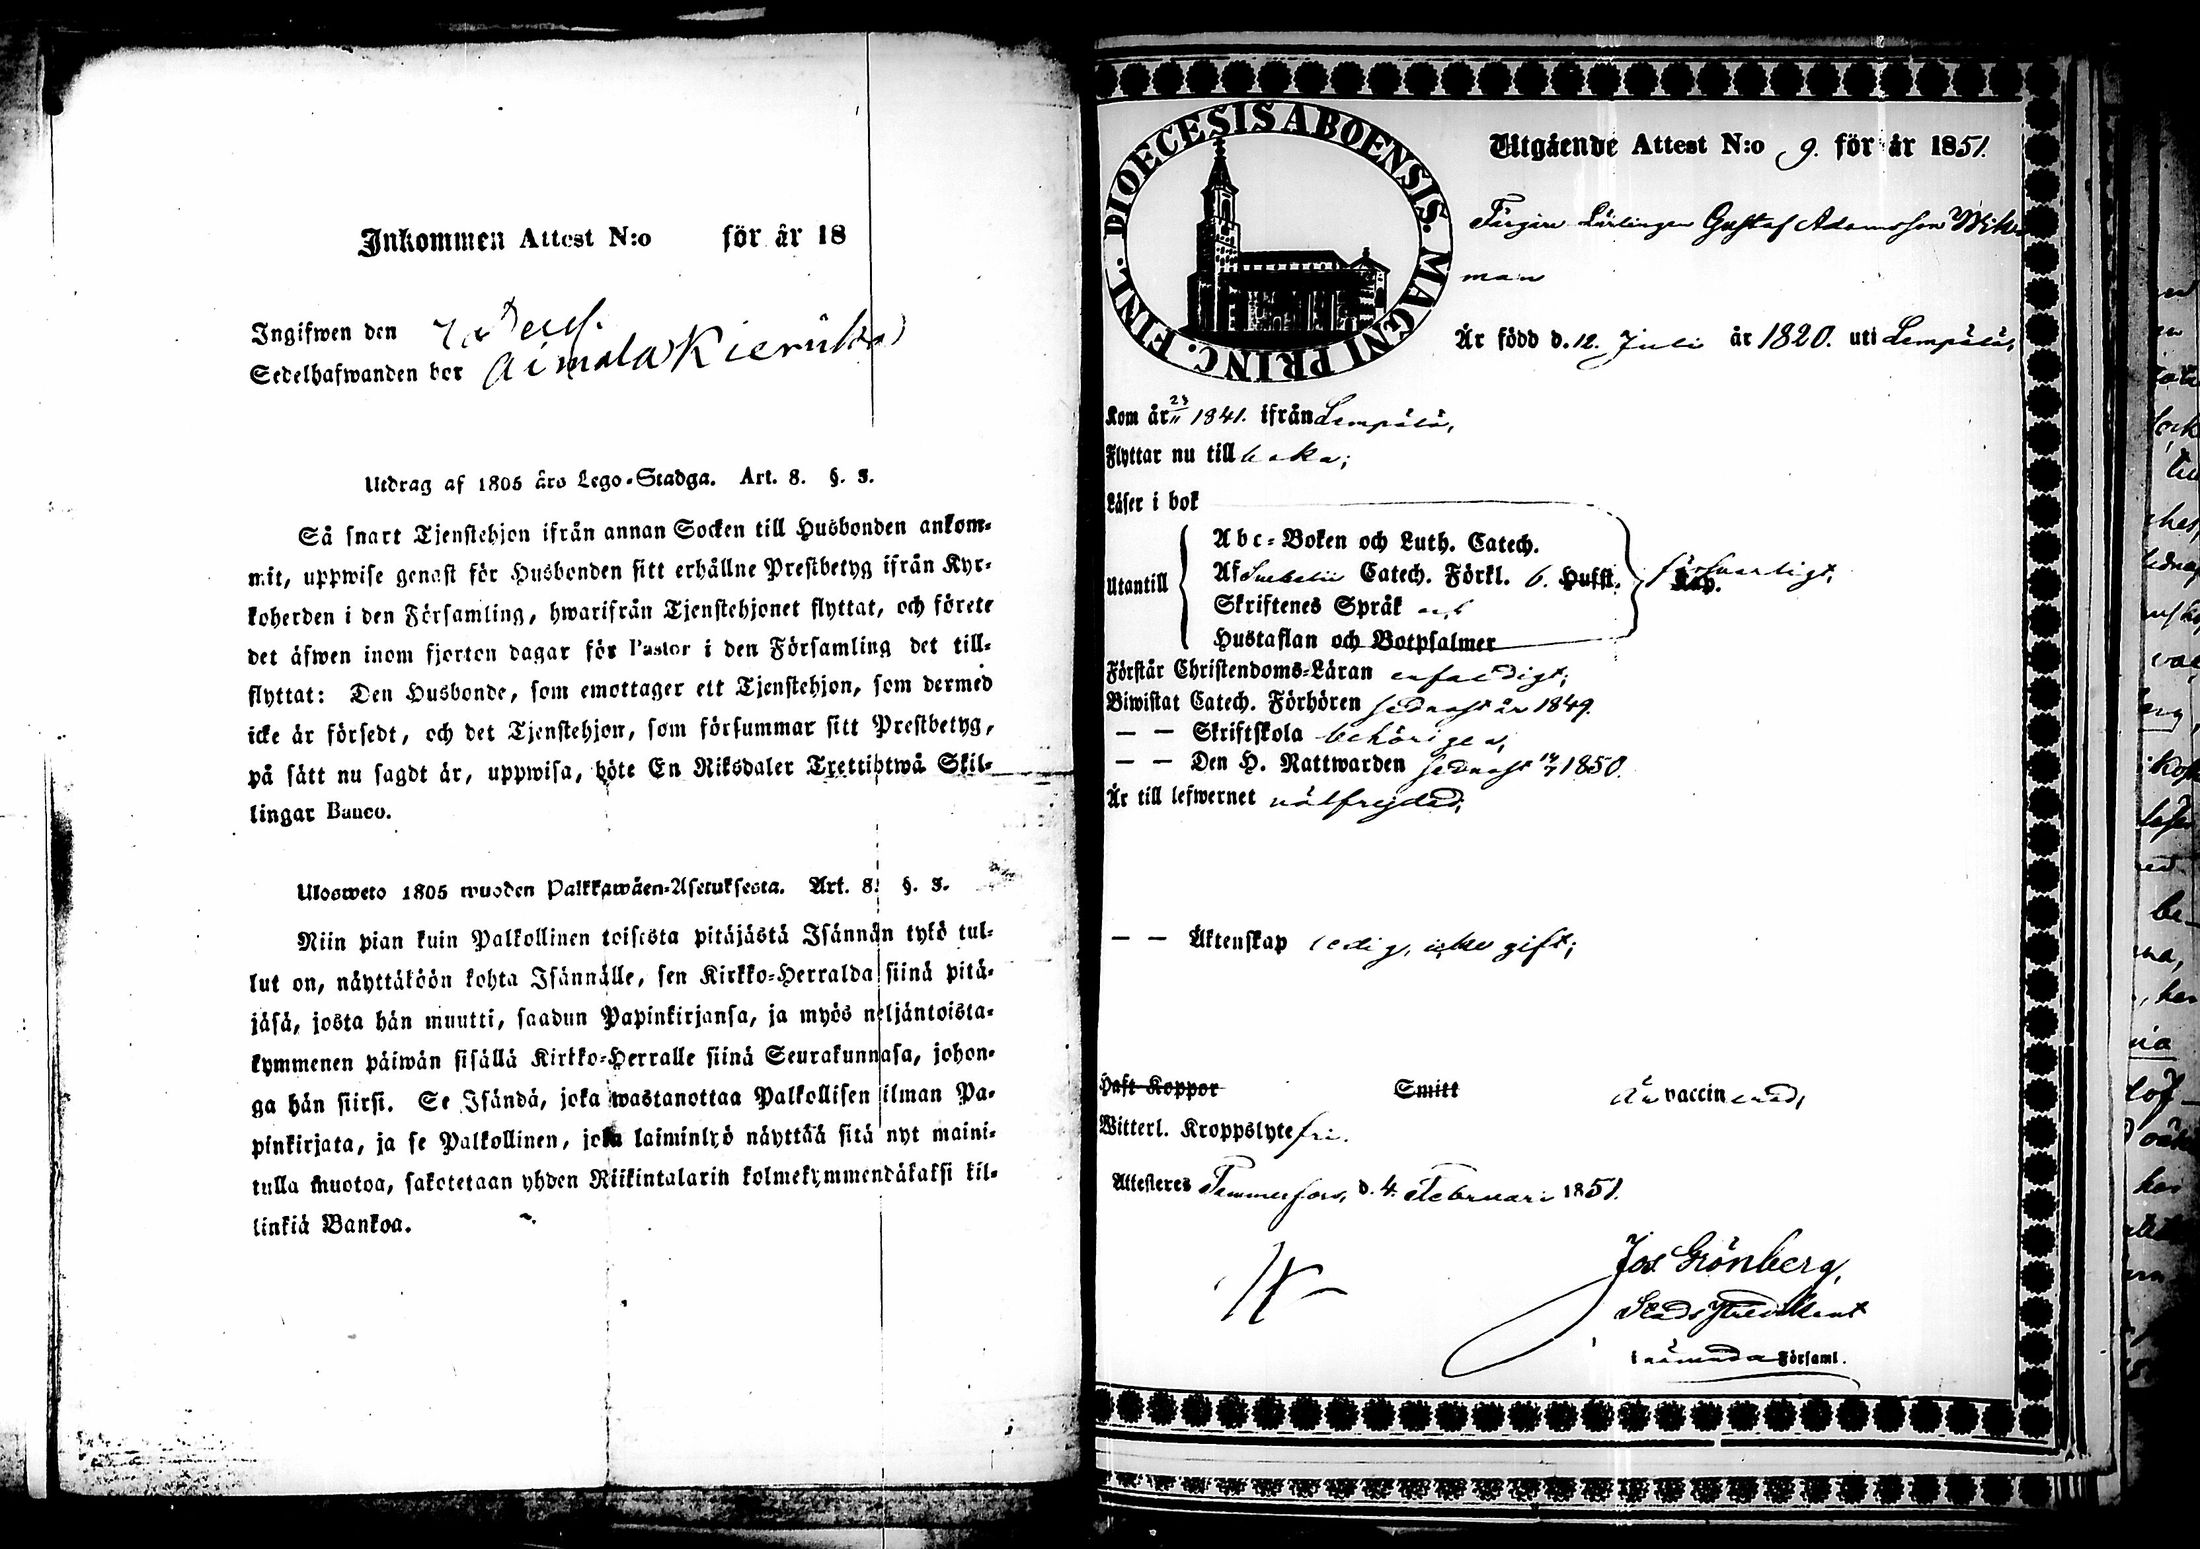 Inkommen Attest N:o för år 18
Ingifwen den 7 Dec.
Sedelhafwanden bor
Utdrag af 1805 års Lego-Stadga. Art. 8. §. 3.
Så snart Tjenstehjon ifrån annan Socken till Husbonden ankom-
mit, uppwise genast för Husbonden sitt erhållne Prestbetyg ifrån Kyr-
koherden i den Församling, hwarifrån Tjenstehjonet flyttat, och förete
det äfwen inom fjorton dagar för Pastor i den Församling det till-
flyttat: Den Husbonde, som emottager ett Tjenstehjon, som dermed
icke är försedt, och det Tjenstehjon, som försummar sitt Prestbetyg,
på sätt nu sagdt är, uppwisa, böte En Riksdaler Trettiotwå Skil-
lingar Banco.
Ulosweto 1805 wuoden Palkkawäen-Asetuksesta. Art. 8. §. 3.
Niin pian kuin Palkollinen toisesta pitäjästä Isännän tykö tul-
lut on, näyttäköön kohta Isännälle, sen Kirkko-Herralda siinä pitä-
jäsä, josta hän muutti, saadun Papinkirjansa, ja myös neljäntoista-
kymmenen päiwän sisällä Kirkko-Herralle siinä Seurakunnasa, johon-
ga hän siirsi. Se Isändä, joka wastanottaa Palkollisen ilman Pa-
pinkirjata, ja se Palkollinen, joka laiminlyö näyttää sitä nyt maini-
tulla muotoa, sakotetaan yhden Riikintalarin kolmekymmendäkaksi kil-
linkiä Bankoa.
DIOECESIS ABOENSIS. MAGNI PRINC. FINL.
Utgående Attest N:o 9. för år 1851.
Färgare Lärlingen Gustaf Adamsson Wik-
man
Är född d. 12. Juli år 1820. uti Lempälä,
Kom år 23/11 1841. ifrån Lempälä,
Flyttar nu tillbaka;
Läser i bok
Utantill
Abc-Boken och Luth. Catech.
Af Svebelii Catech. Förkl. 6. Huffst. Kap. försvarligt,
Skriftenes Språk och
Hustaflan och Botpsalmer
Förstår Christendoms-Läran enfaldigt;
Biwistat Catech. Förhören sednast år 1849.
— — Skriftskola behörigen,
— — Den H. Nattwarden sednast 14/7 1850.
Är till lefwernet välfrejdad;
— — Äktenskap ledig, icke gift;
Haft Koppor Smitt Är vaccinerad,
Witterl. Kroppslyte fri.
Attesteres Tammerfors, d. 4. Februari 1851.
Jos. Grönberg,
Stads Predikant
i nämnda Församl.